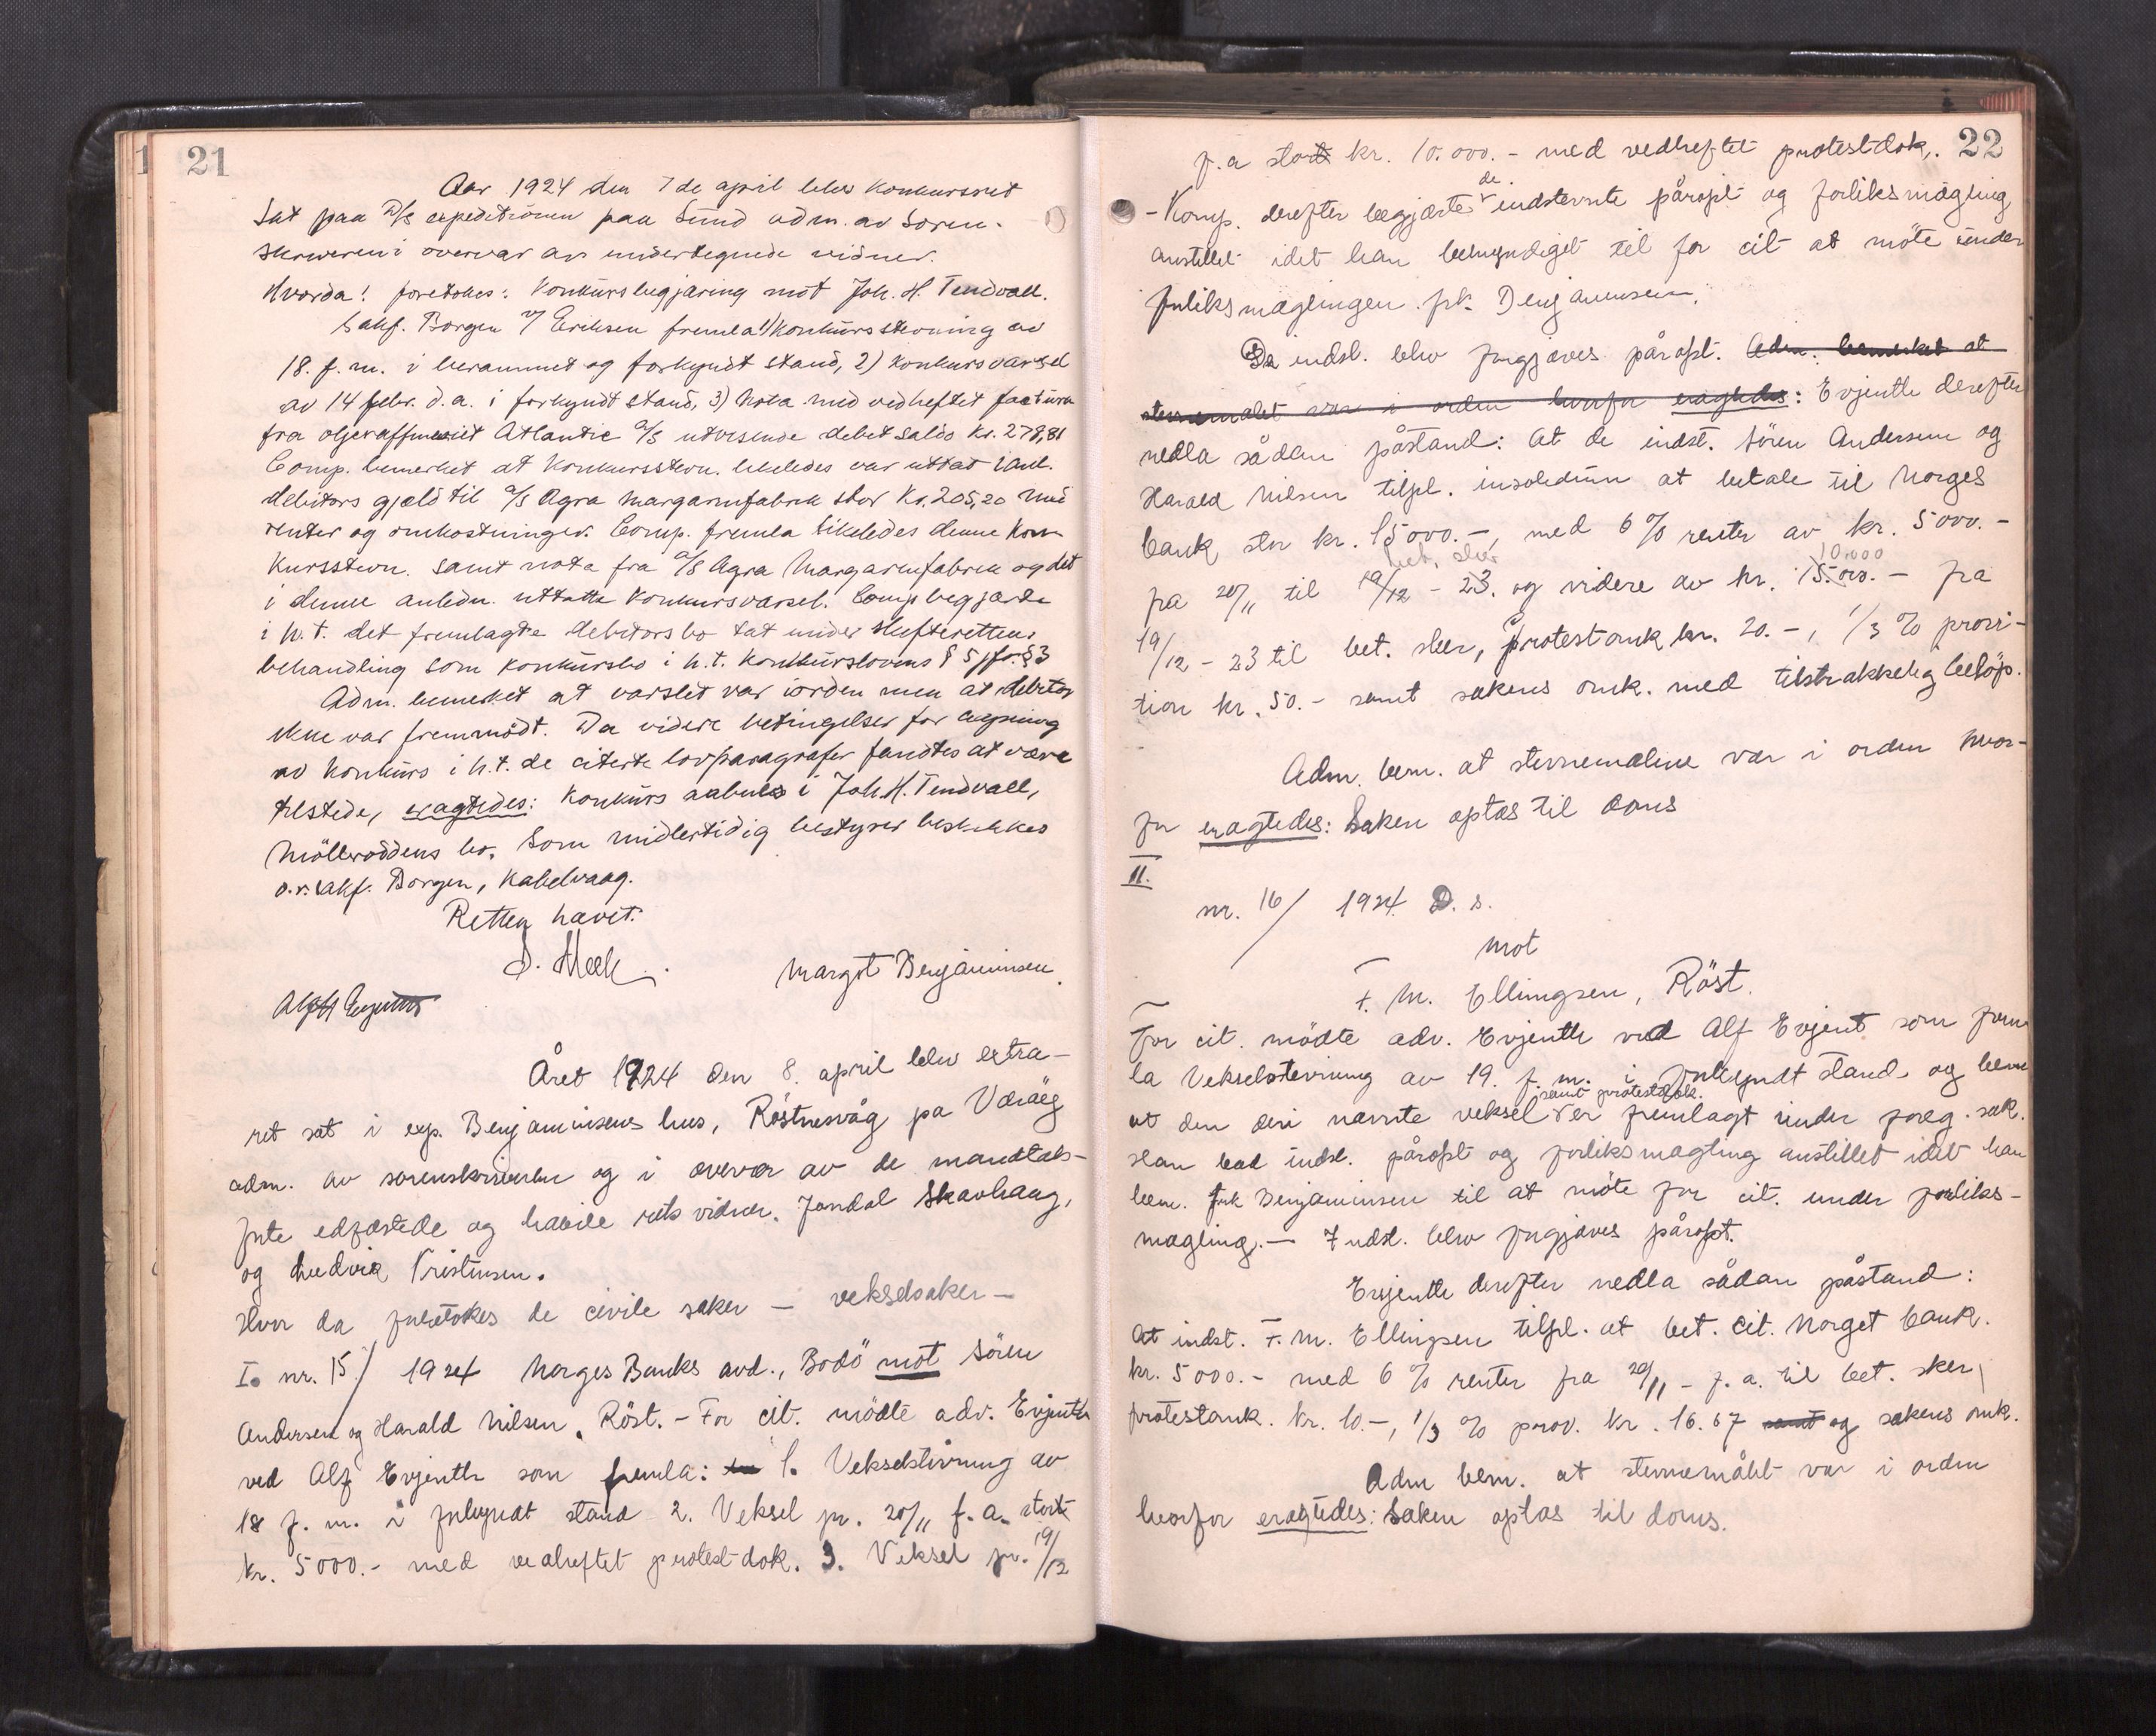 21
Aar 1924 den 7de april blev konkursret
sat paa D/S expeditionen paa Sund adm. av Soren-
skriveren i overvær av undertegnede vidner.
Hvorda! foretokes: Konkursbegjæring mot Joh. H. Tendvall.
Sakf. Borgen v/ Eriksen fremla 1) konkursstevning av
18. f. m. i berammet og forkyndt stand, 2) konkursvarsel
av 14 febr. d.a. i forkyndt stand, 3) Nota med vedheftet factura
fra oljeraffineriet Atlantic A/S utvisende debet saldo Kr. 278,81
Comp. bemerket at konkursstevn. likeledes var uttat i anl.
debitors gjæld til A/S Agra Margarinfabrik stor Kr. 205,20 med
renter og omkostninger. Comp. fremla likeledes denne kon-
kursstevn. samt nota fra A/S Agra Margarinfabrik og det
i denne anledn. uttatte konkursvarsel. Comp begjærte
i h. t. det fremlagte debitors bo tat under skifterettens
behandling som konkursbo i h.t. konkurslovens § 5 jfr. § 3
Adm. bemerket at varslet var iorden men at debitor
ikke var fremmødt. Da videre betingelser for aapning
av konkurs i h.t. de citerte lovparagrafer fandtes at være
tilstede, eragtedes: Konkurs aabnes i Joh. H. Tendvall,
Mölleroddens bo. Som midlertidig bestyrer beskikkes
o.r.sakf. Borgen, Kabelvaag.
Retten hævet.
Margot Benjaminsen
Året 1924 den 8. april blev extra-
ret sat i exp. Benjaminsens hus, Röstnesvåg på Væröy
adm. av sorenskriveren og i overvær av de mandtals-
förte edfæstede og habile rets vidner. Jendal Skavhaug,
og Ludvig Kristensen.
Hvor da foretokes de civile saker – vekselsaker –
I. nr. 15/ 1924 Norges Banks avd., Bodö mot Sören
Andersen og Harald Nilsen, Röst. – For cit. mödte adv. Evjenth
ved Alf Evjenth som fremla: 1. Vekselstevning av
18 f. m. i forkyndt stand 2. Veksel pr. 20/11 f. a. stor
kr. 5000.- med vedheftet protestdok. 3. Veksel pr. 19/12
22
f. a stor kr. 10.000.- med vedheftet protestdok.
- Komp. derefter begjærte de indstevnte påropt og forliksmægling
anstillet idet han bemyndiget til for cit at möte under
forliksmæglingen frk. Benjaminsen.
De indst. blev forgjæves påropt. Adm. bemerket at
stevnemålet var i orden hvorfor eragtedes: Evjenth derefter
nedla sådan påstand: At de indst. Sören Andersen og
Harald Nilsen tilpl. insolidum at betale til Norges
bank stor kr. 15000.-, med 6 % renter av kr. 5000.-
bet. sker 10.000
fra 20/11 til 19/12 - 23. og videre av kr. 15.000.- fra
19/12 - 23 til bet. sker, protestomk kr. 20.-, 1/3 % provi-
tion kr. 50.- samt sakens omk. med tilstrækkelig belöp.
Adm. bem. at stevnemålene var i orden hvor-
for eragtedes: Saken optas til doms
II.
nr. 16/ 1924 D. s.
mot
F. M. Ellingsen, Röst.
For cit. mödte adv. Evjenth ved Alf Evjent som frem
la Vekselstevning av 19. f. m. i forkyndt stand og bem
samt protestdok.
at den deri nævnte veksel er fremlagt under foreg. sak.
Han bad indst. påropt og forliksmægling anstillet idet han
bem. frk Benjaminsen til at möte for cit. under forliks-
mægling. – Indst. blev forgjæves påropt.
Evjenth derefter nedla sådan påstand:
At indst. F. M. Ellingsen tilpl. at bet. cit. Norges bank.
kr. 5000.- med 6 % renter fra 20/11 - f. a. til bet. sker,
protestomk. kr. 10.-, 1/3 % prov. kr. 16.67 samt og sakens omk.
Adm bem. at stevnemålet var i orden
hvorfor eragtedes: Saken optas til doms.